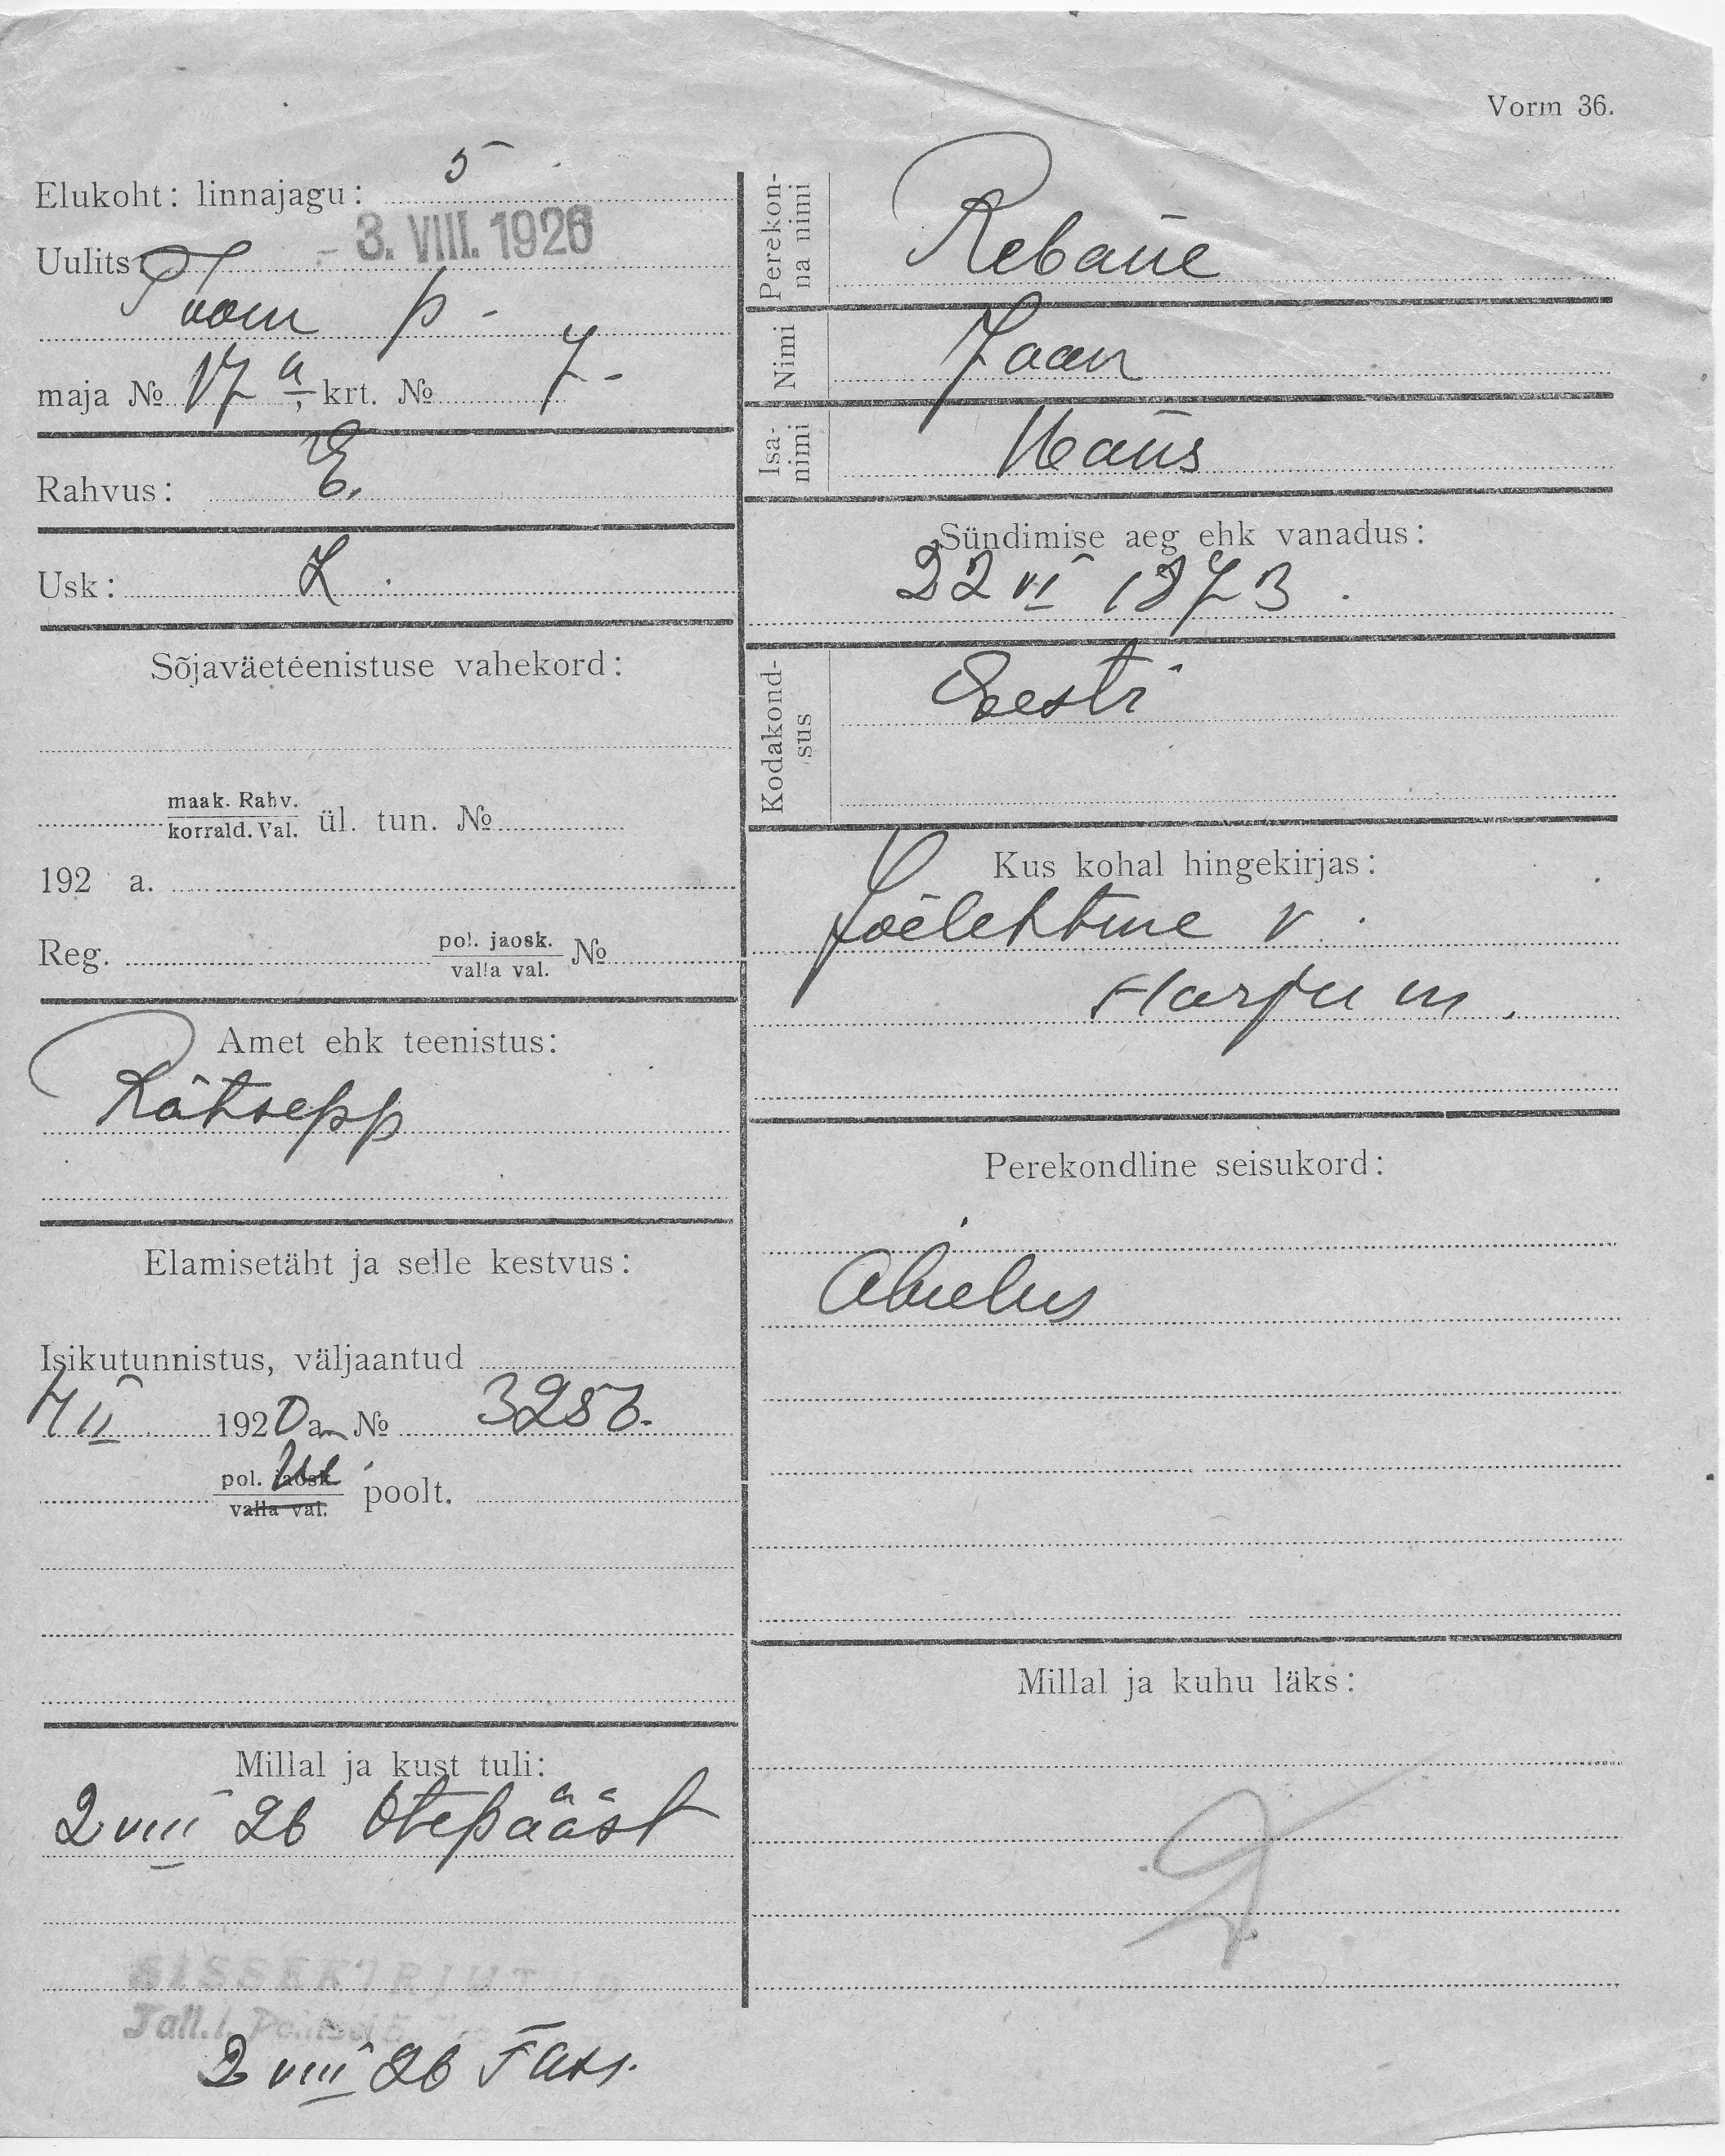 Vorm 36.
Elukoht: linnajagu: 5
- 3. VIII. 1926
Uulits:
Toom p -
maja № 17 a, krt. № 7-
Rahvus: E.
Usk: L.
Sõjaväeteenistuse vahekord:
maak. Rahv.
korrald. Val. ül. tun. №
192 a.
Reg. pol. jaosk.
valla val. №
Amet ehk teenistus:
Rätsepp
Elamisetäht ja selle kestvus:
Isikutunnistus, väljaantud
4 II 1920 a. № 3286.
pol. jaosk.
valla val. poolt.
Millal ja kust tuli:
2 VIII 26 Otepääst
SISSEKIRJUTUD
Tall.
2 VIII 26
Perekon-
na nimi
Rebane
Nimi
Jaan
Isa-
nimi
Hans
Sündimise aeg ehk vanadus:
22 VI 1873.
Kodakond-
sus
Eesti
Kus kohal hingekirjas:
Jõelehtme v.
Harju m.
Perekondline seisukord:
Abielus
Millal ja kuhu läks: